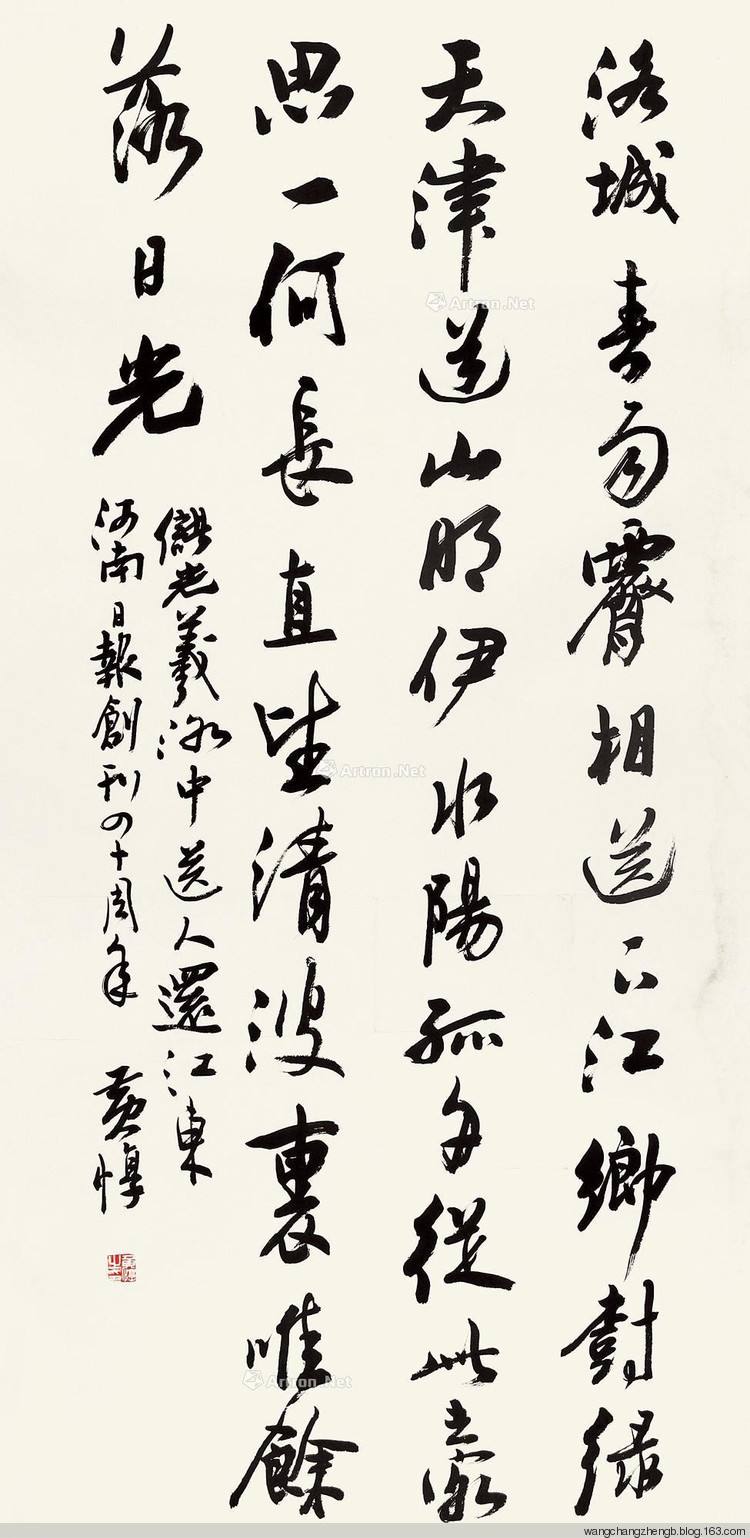 洛城春雨霽相送下江鄉樹緑
天津道山明伊水陽孤舟從此去客
思一何長直望清波裏唯餘
落日光
儲光羲洛中送人還江東
河南日報創刊四十周年 黄惇
Artron.Net
Artron.Net
Artron.Net
wangchangzhengb.blog.163.com